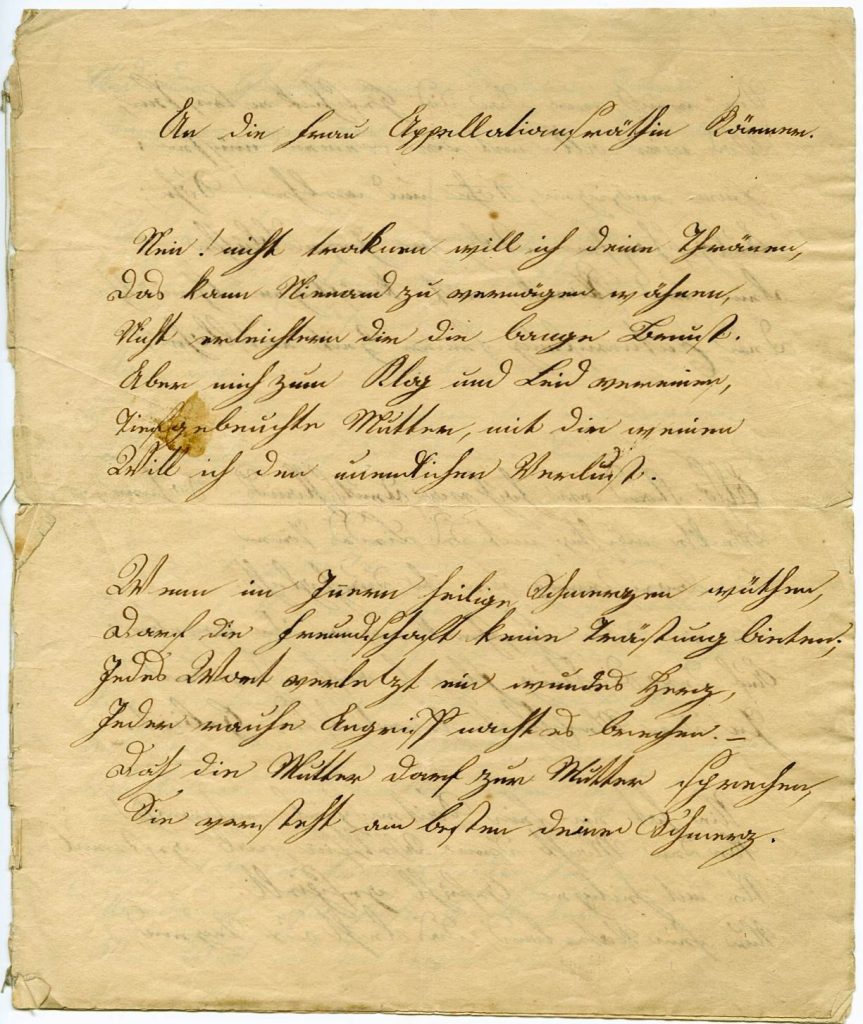 An die Frau Appellationsräthin Körner.
Nein! nicht troknen will ich deine Thränen,
Das kann Niemand zu vermögen wähnen,
Nicht erleichtern dir die bange Brust.
Aber mich zum Klag und Leid vereinen,
Tiefgebeuchte Mutter, mit dir weinen
Will ich den unendlichen Verlust.
Wenn im Innern heilige Schmerzen wüthen,
Darf die Freundschaft keine Tröstung bieten;
Jedes Wort verletzt ein wundes Herz,
Jeder rauhe Angriff macht es brechen. –
Doch die Mutter darf zur Mutter sprechen,
Sie versteht am besten deinen Schmerz.